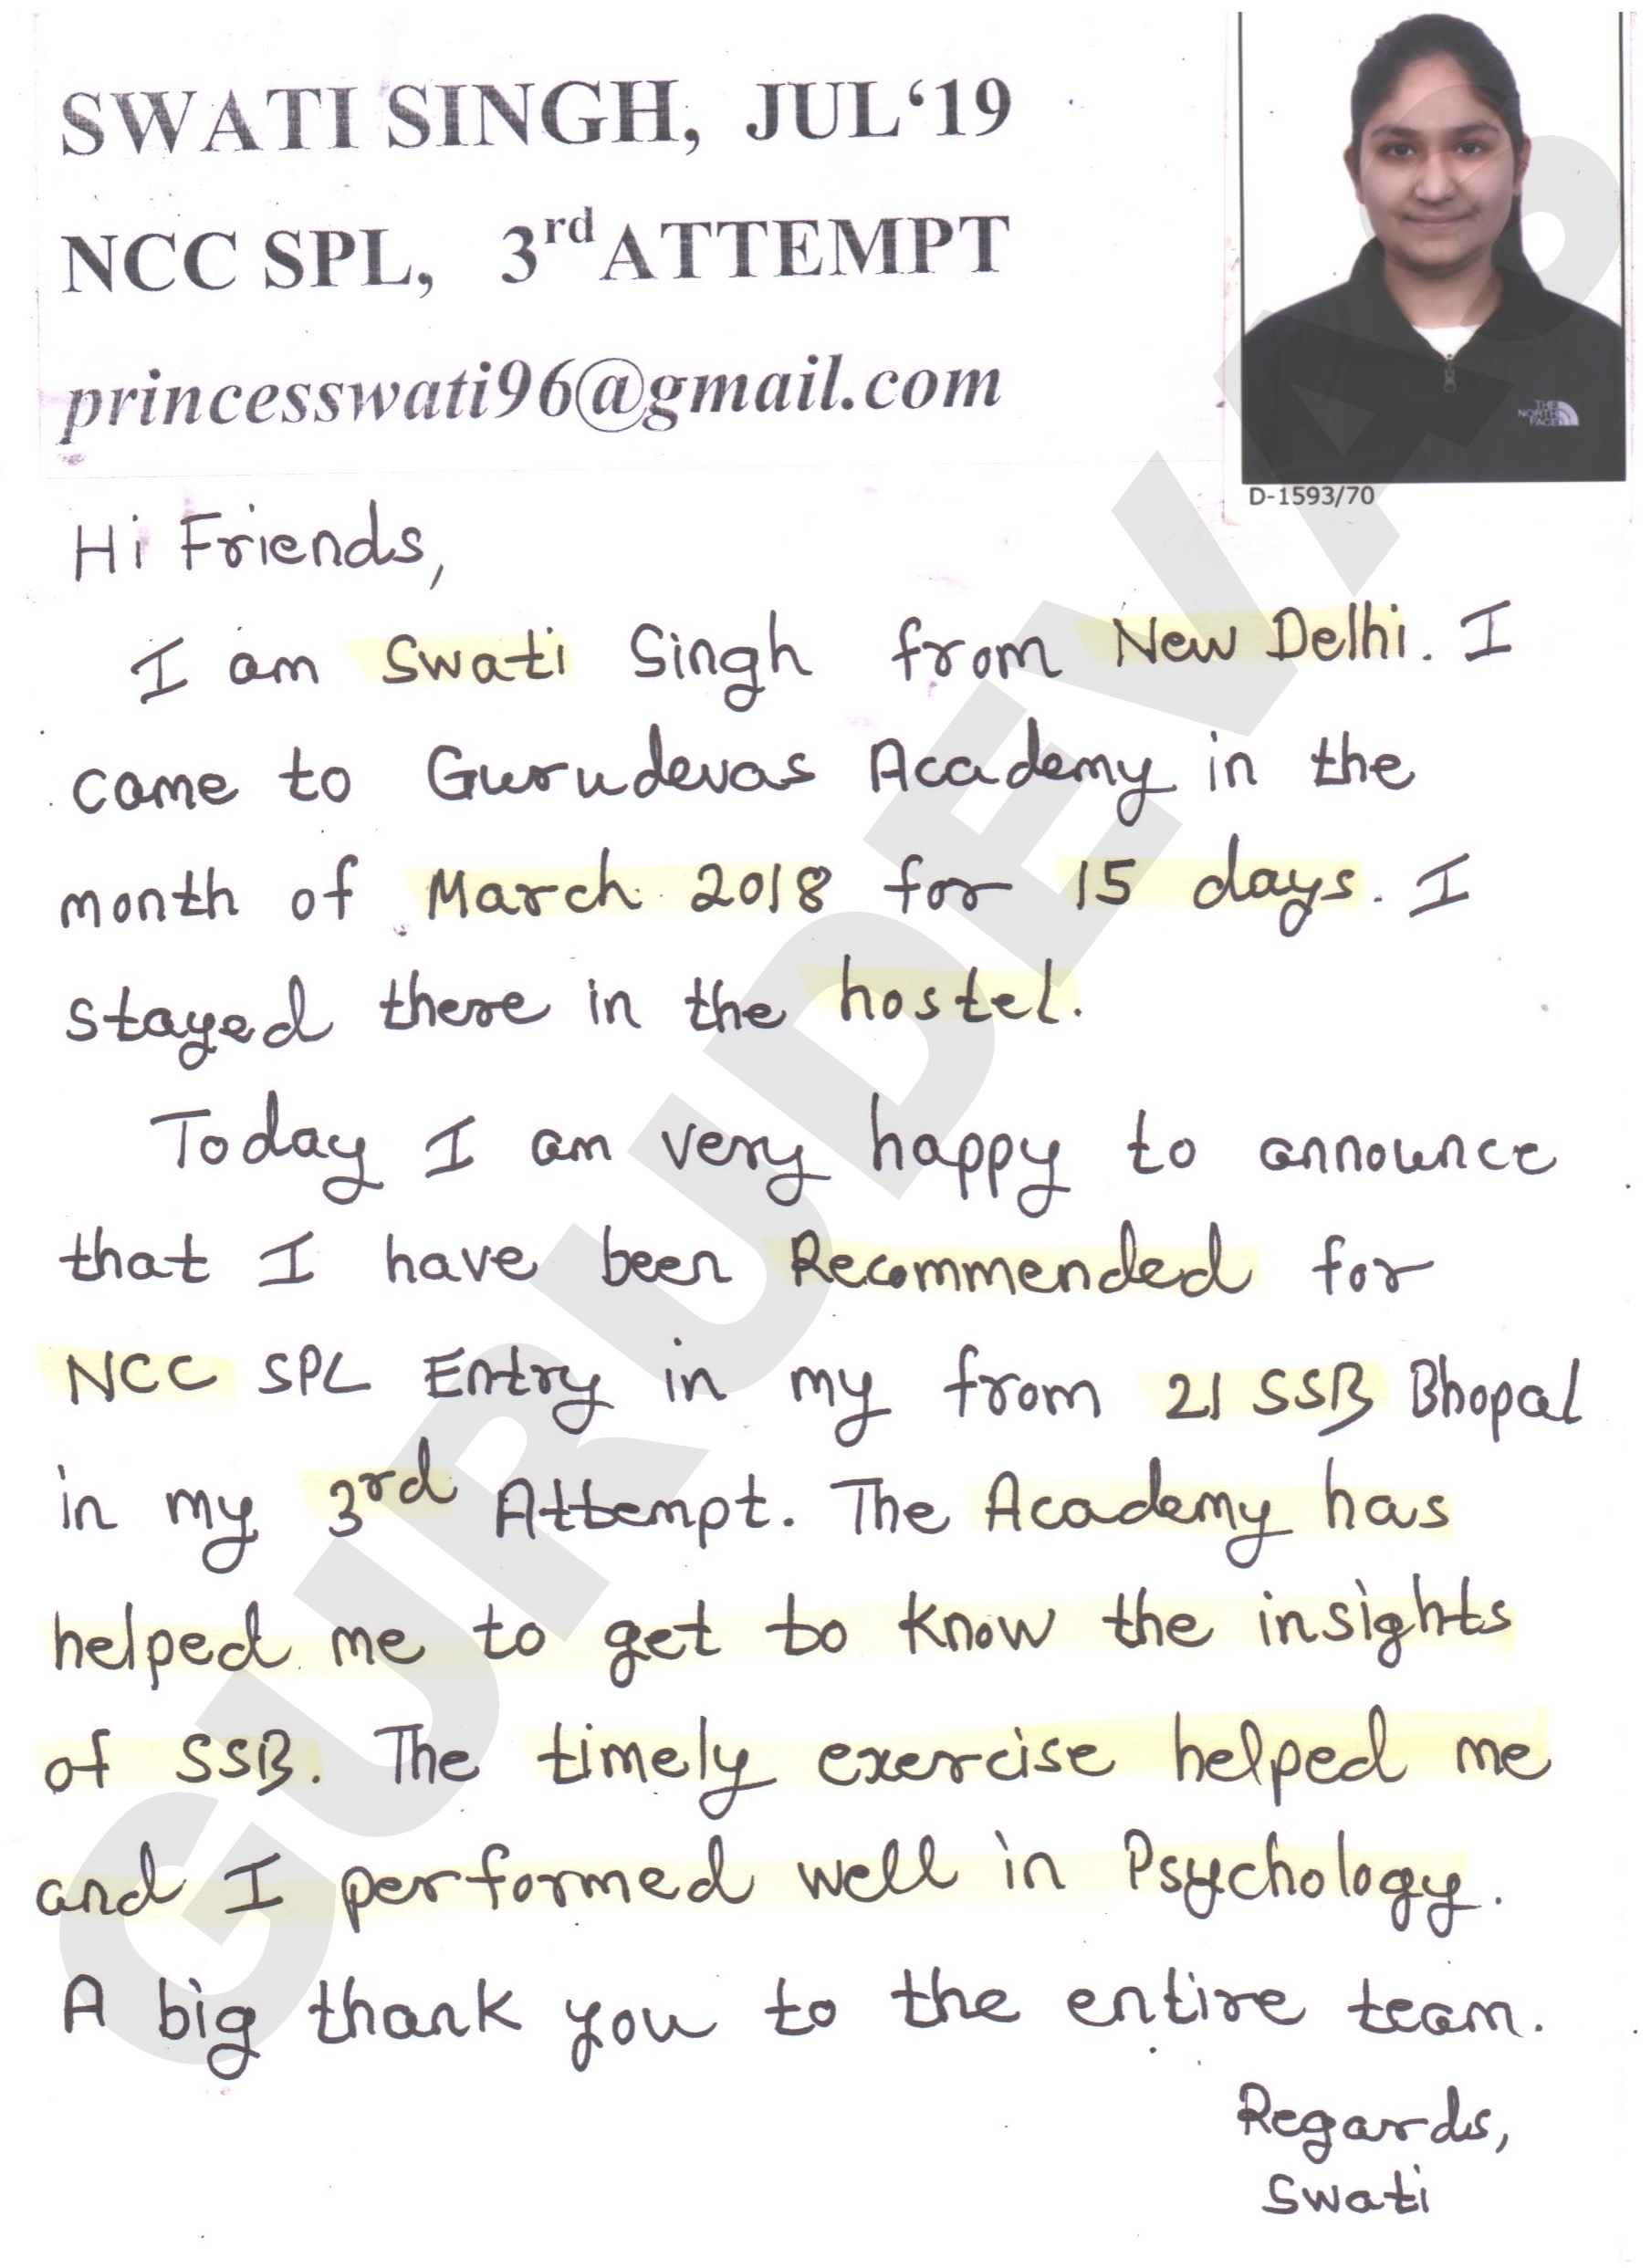 SWATI SINGH, JUL‘19
NCC SPL, 3rd ATTEMPT
princesswati96@gmail.com
THE
NORTH
FACE
D-1593/70
Hi Friends,
I am Swati Singh from New Delhi. I
came to Gurudevas Academy in the
month of March 2018 for 15 days. I
stayed there in the hostel.
Today I am very happy to announce
that I have been Recommended for
NCC SPL Entry in my from 21 SSB Bhopal
in my 3rd Attempt. The Academy has
helped me to get to know the insights
of SSB. The timely exercise helped me
and I performed well in Psychology.
A big thank you to the entire team.
Regards,
Swati
GURUDEVAS